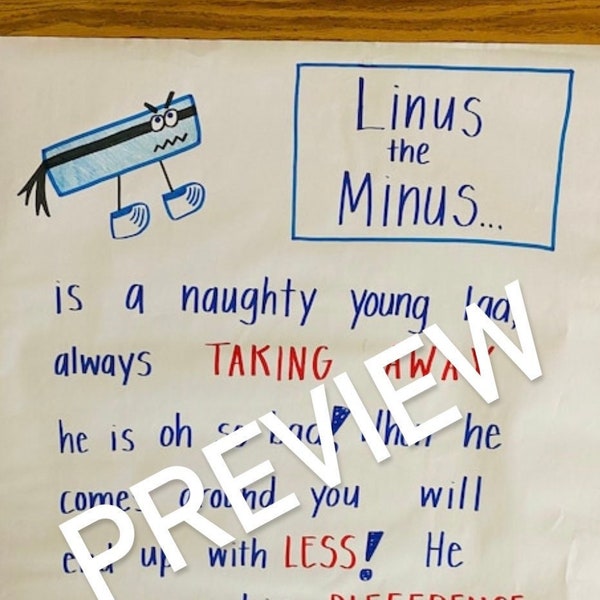 Linus
the
Minus...
is a naughty young lad,
always TAKING AWAY
he is oh so bad! When he
comes around you will
end up with LESS! He
DIFFERENCE
PREVIEW